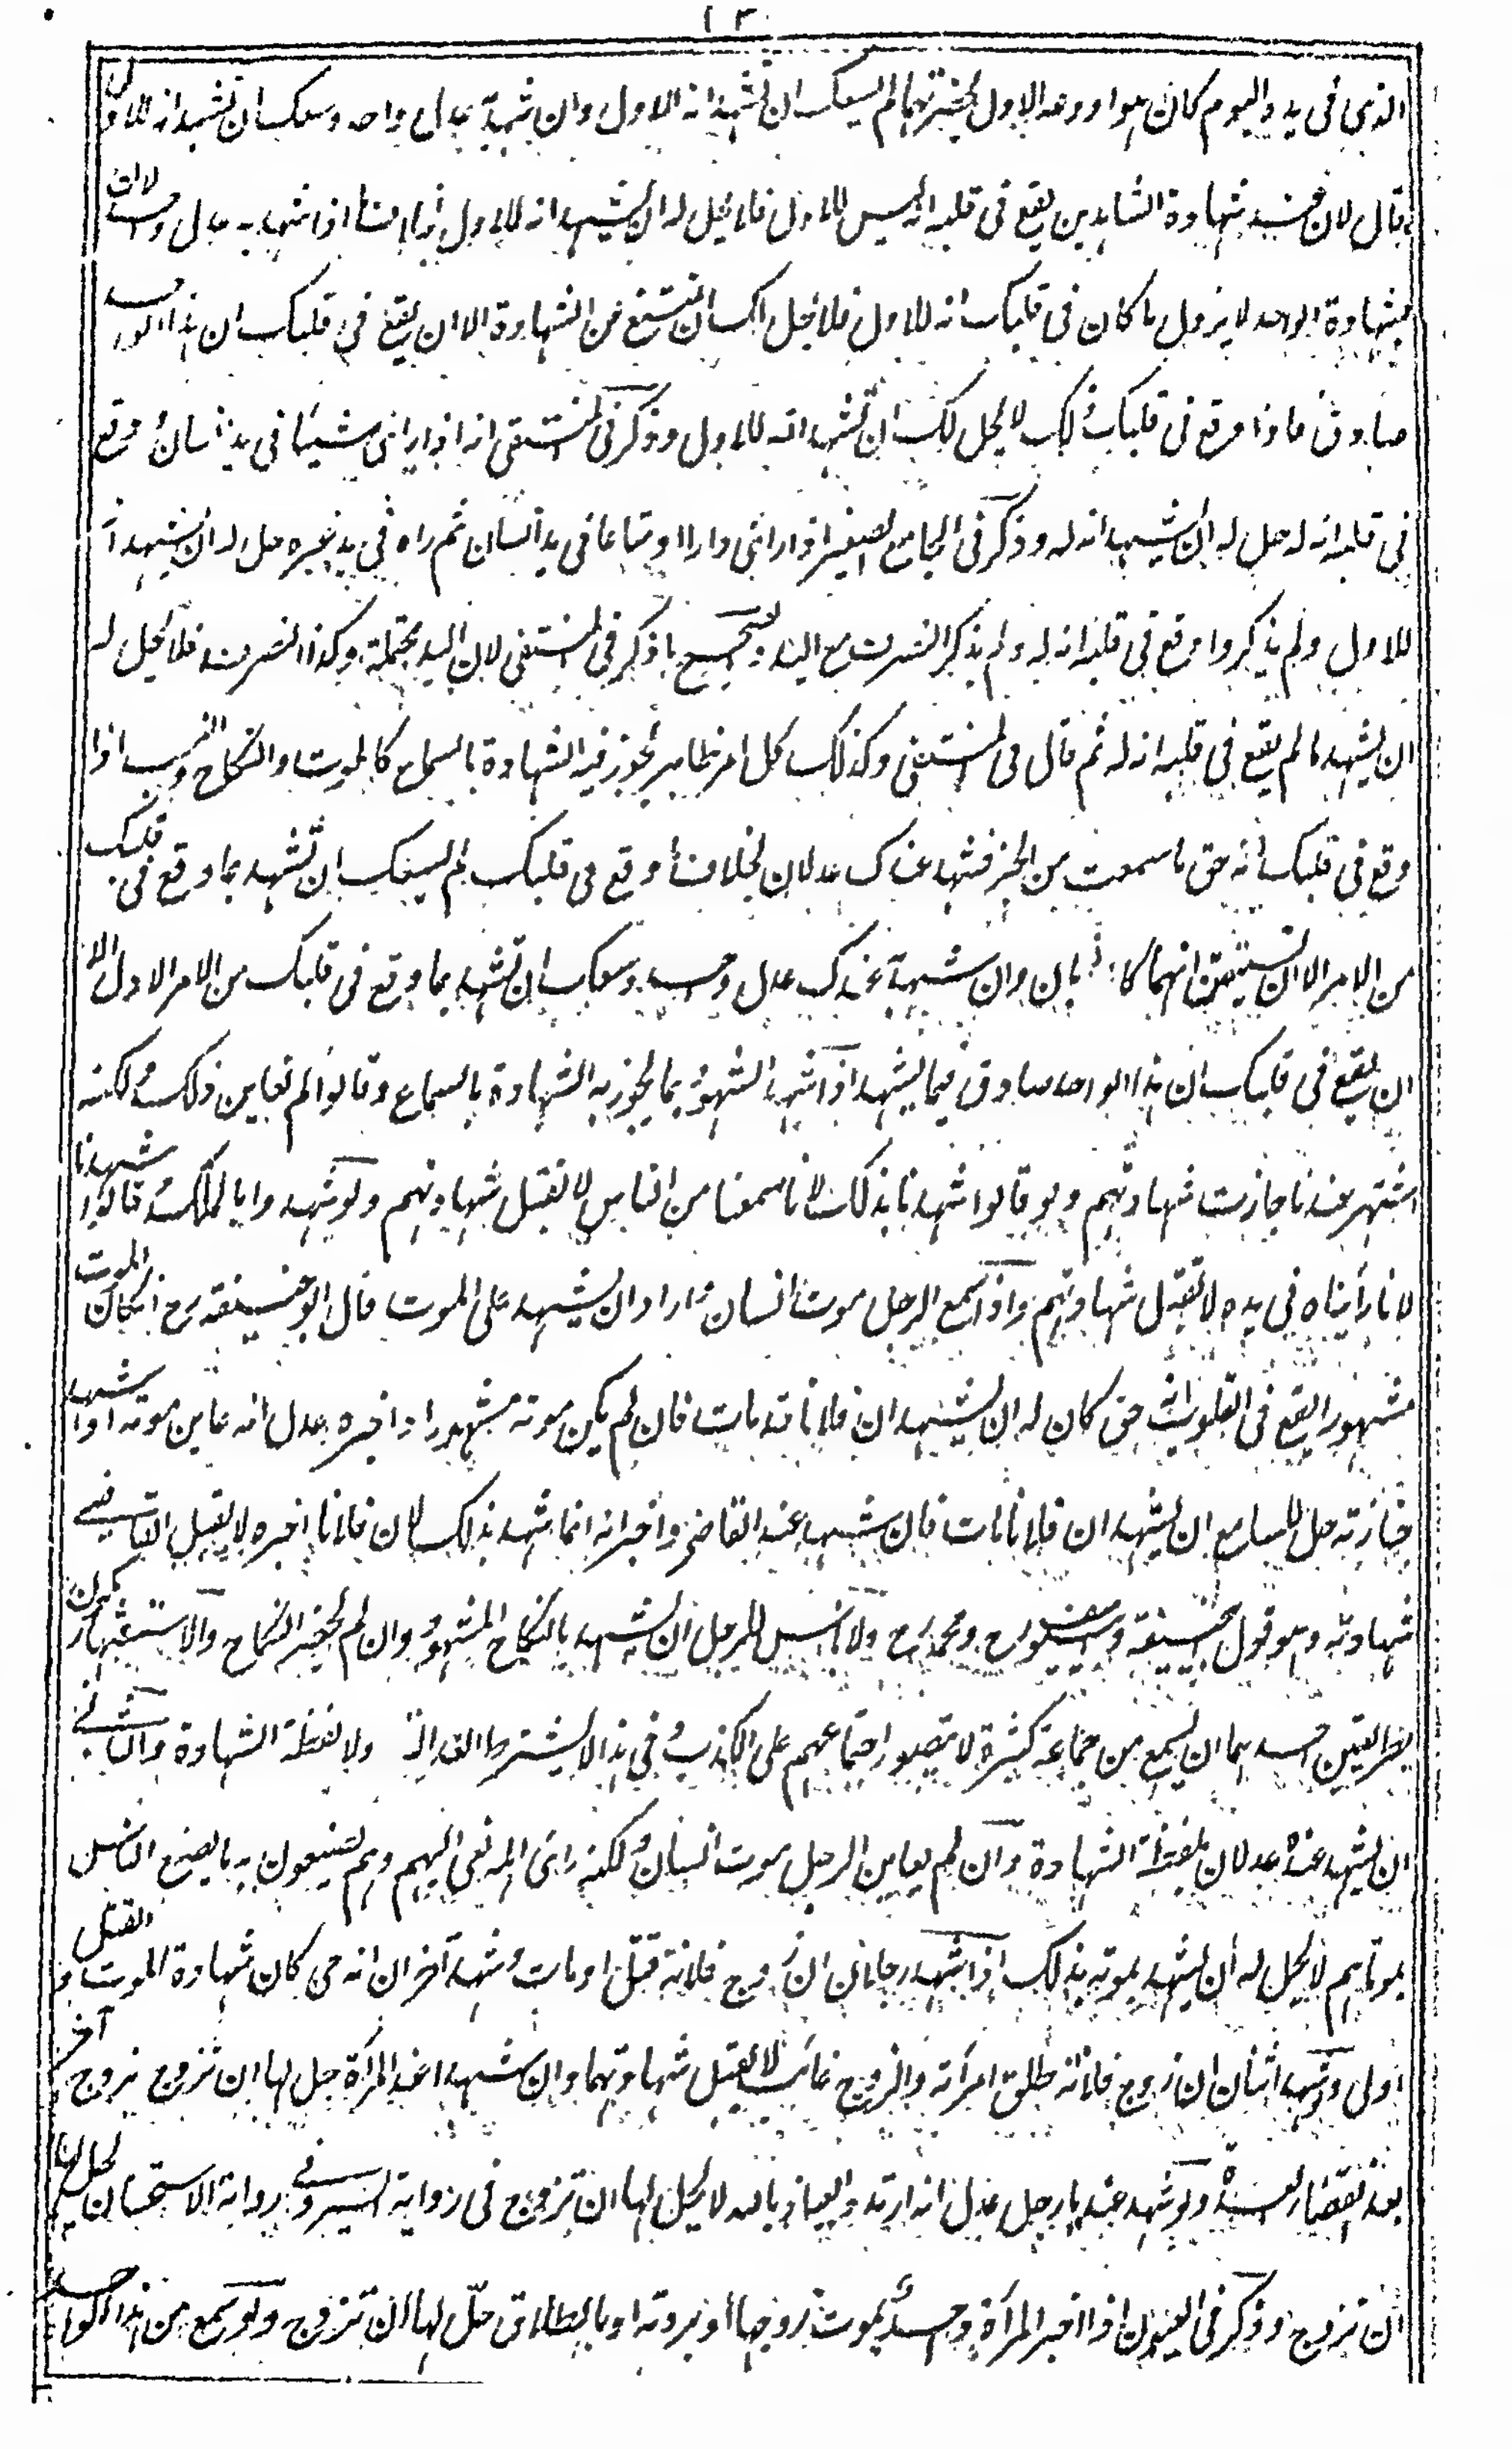 ١٣
الذي في يده اليوم كان هو اودعه الاول بحضرتهما لم يسعك ان تشهد انه الاول وان شهد به عدل واحد وسعك ان تشهد انه للاول
قال لان عند شهادة الشاهدين يقع في قلبه انه ليس للاول فلا يحل له ان يشهد انه للاول اذا شهد به عدل واحد لان
بشهادة الواحد لا يزول ما كان في قلبك انه للاول فلا يحل لك ان تمتنع عن الشهادة الا ان يقع في قلبك ان هذا الواحد
صادق فاذا وقع في قلبك ذلك لا يحل لك ان تشهد انه للاول وذكر في المنتقى انه اذا راى شيئا في يد انسان ووقع
في قلبه انه له حل له ان يشهد انه له وذكر في الجامع الصغير اذا راى دارا او متاعا في يد انسان ثم راه في يد غيره حل له ان يشهد انه
للاول ولم يذكروا وقع في قلبه انه له ولم يذكر التصرف مع اليد والصحيح ما ذكر في المنتقى لان اليد محتملة وكذا التصرف فلا يحل له
ان يشهد ما لم يقع في قلبه انه له ثم قال في المنتقى وكذلك كل امر ظاهر تجوز فيه الشهادة بالسماع كالموت والنكاح والنسب اذا
وقع في قلبك انه حق ما سمعت من الخبر فشهد عندك عدلان بخلاف ما وقع في قلبك لم يسعك ان تشهد بما وقع في قلبك
من الامر الا ان تستيقن انهما كاذبان وان شهد به عندك عدل واحد وسعك ان تشهد بما وقع في قلبك من الامر الاول الا
ان يقع في قلبك ان هذا الواحد صادق فيما يشهد اذا شهد الشهود بما يجوز به الشهادة بالسماع وقالوا لم نعاين ذلك ولكنه
اشتهر عندنا جازت شهادتهم ولو قالوا شهدنا بذلك لانا سمعنا من الناس لا تقبل شهادتهم ولو شهدوا بالملك وقالوا شهدنا
لانا رأيناه في يده لا تقبل شهادتهم واذا سمع الرجل موت انسان واراد ان يشهد على الموت قال ابو حنيفة رح ان كان الموت
مشهورا يقع في القلوب انه حق كان له ان يشهد ان فلانا قد مات فان لم يكن موته مشهورا واخبره عدل انه عاين موته او شهد
جنازته حل للسامع ان يشهد ان فلانا مات فان شهد عند القاضي واخبر انه انما شهد بذلك لان فلانا اخبره لا يقبل القاضي
شهادته وهو قول ابي حنيفة وابي يوسف رح ومحمد رح ولا باس للرجل ان يشهد بالنكاح المشهور وان لم يحضر النكاح والاشتهار يكون
بطريقين احدهما ان يسمع من جماعة كثيرة لا يتصور اجتماعهم على الكذب وفي هذا لا يشترط العدالة ولا لفظة الشهادة والثاني
ان يشهد عنده عدلان بلفظة الشهادة وان لم يعاين الرجل موت انسان ولكنه راى المرتقي اليهم وهم يصنعون به ما يصنع الناس
بموتاهم لا يحل له ان يشهد بموته بذلك اذا شهد رجلان ان زوج فلانة قتل او مات وشهد آخران انه حي كان شهادة الموت والقتل
اولى ولو شهد اثنان ان زوج فلانة طلق امرأته والزوج غائب لا تقبل شهادتهما وان شهدا عند المرأة حل لها ان تزوج بزوج آخر
بعد انقضاء العدة ولو شهد عندها رجل عدل انه ارتد والعياذ بالله لا يحل لها ان تزوج في رواية السير وفي رواية الاستحسان يحل لها
ان تزوج وذكر في العيون اذا اخبر المرأة واحد بموت زوجها او بردته او بالطلاق حل لها ان تتزوج ولو سمع من هذا الواحد